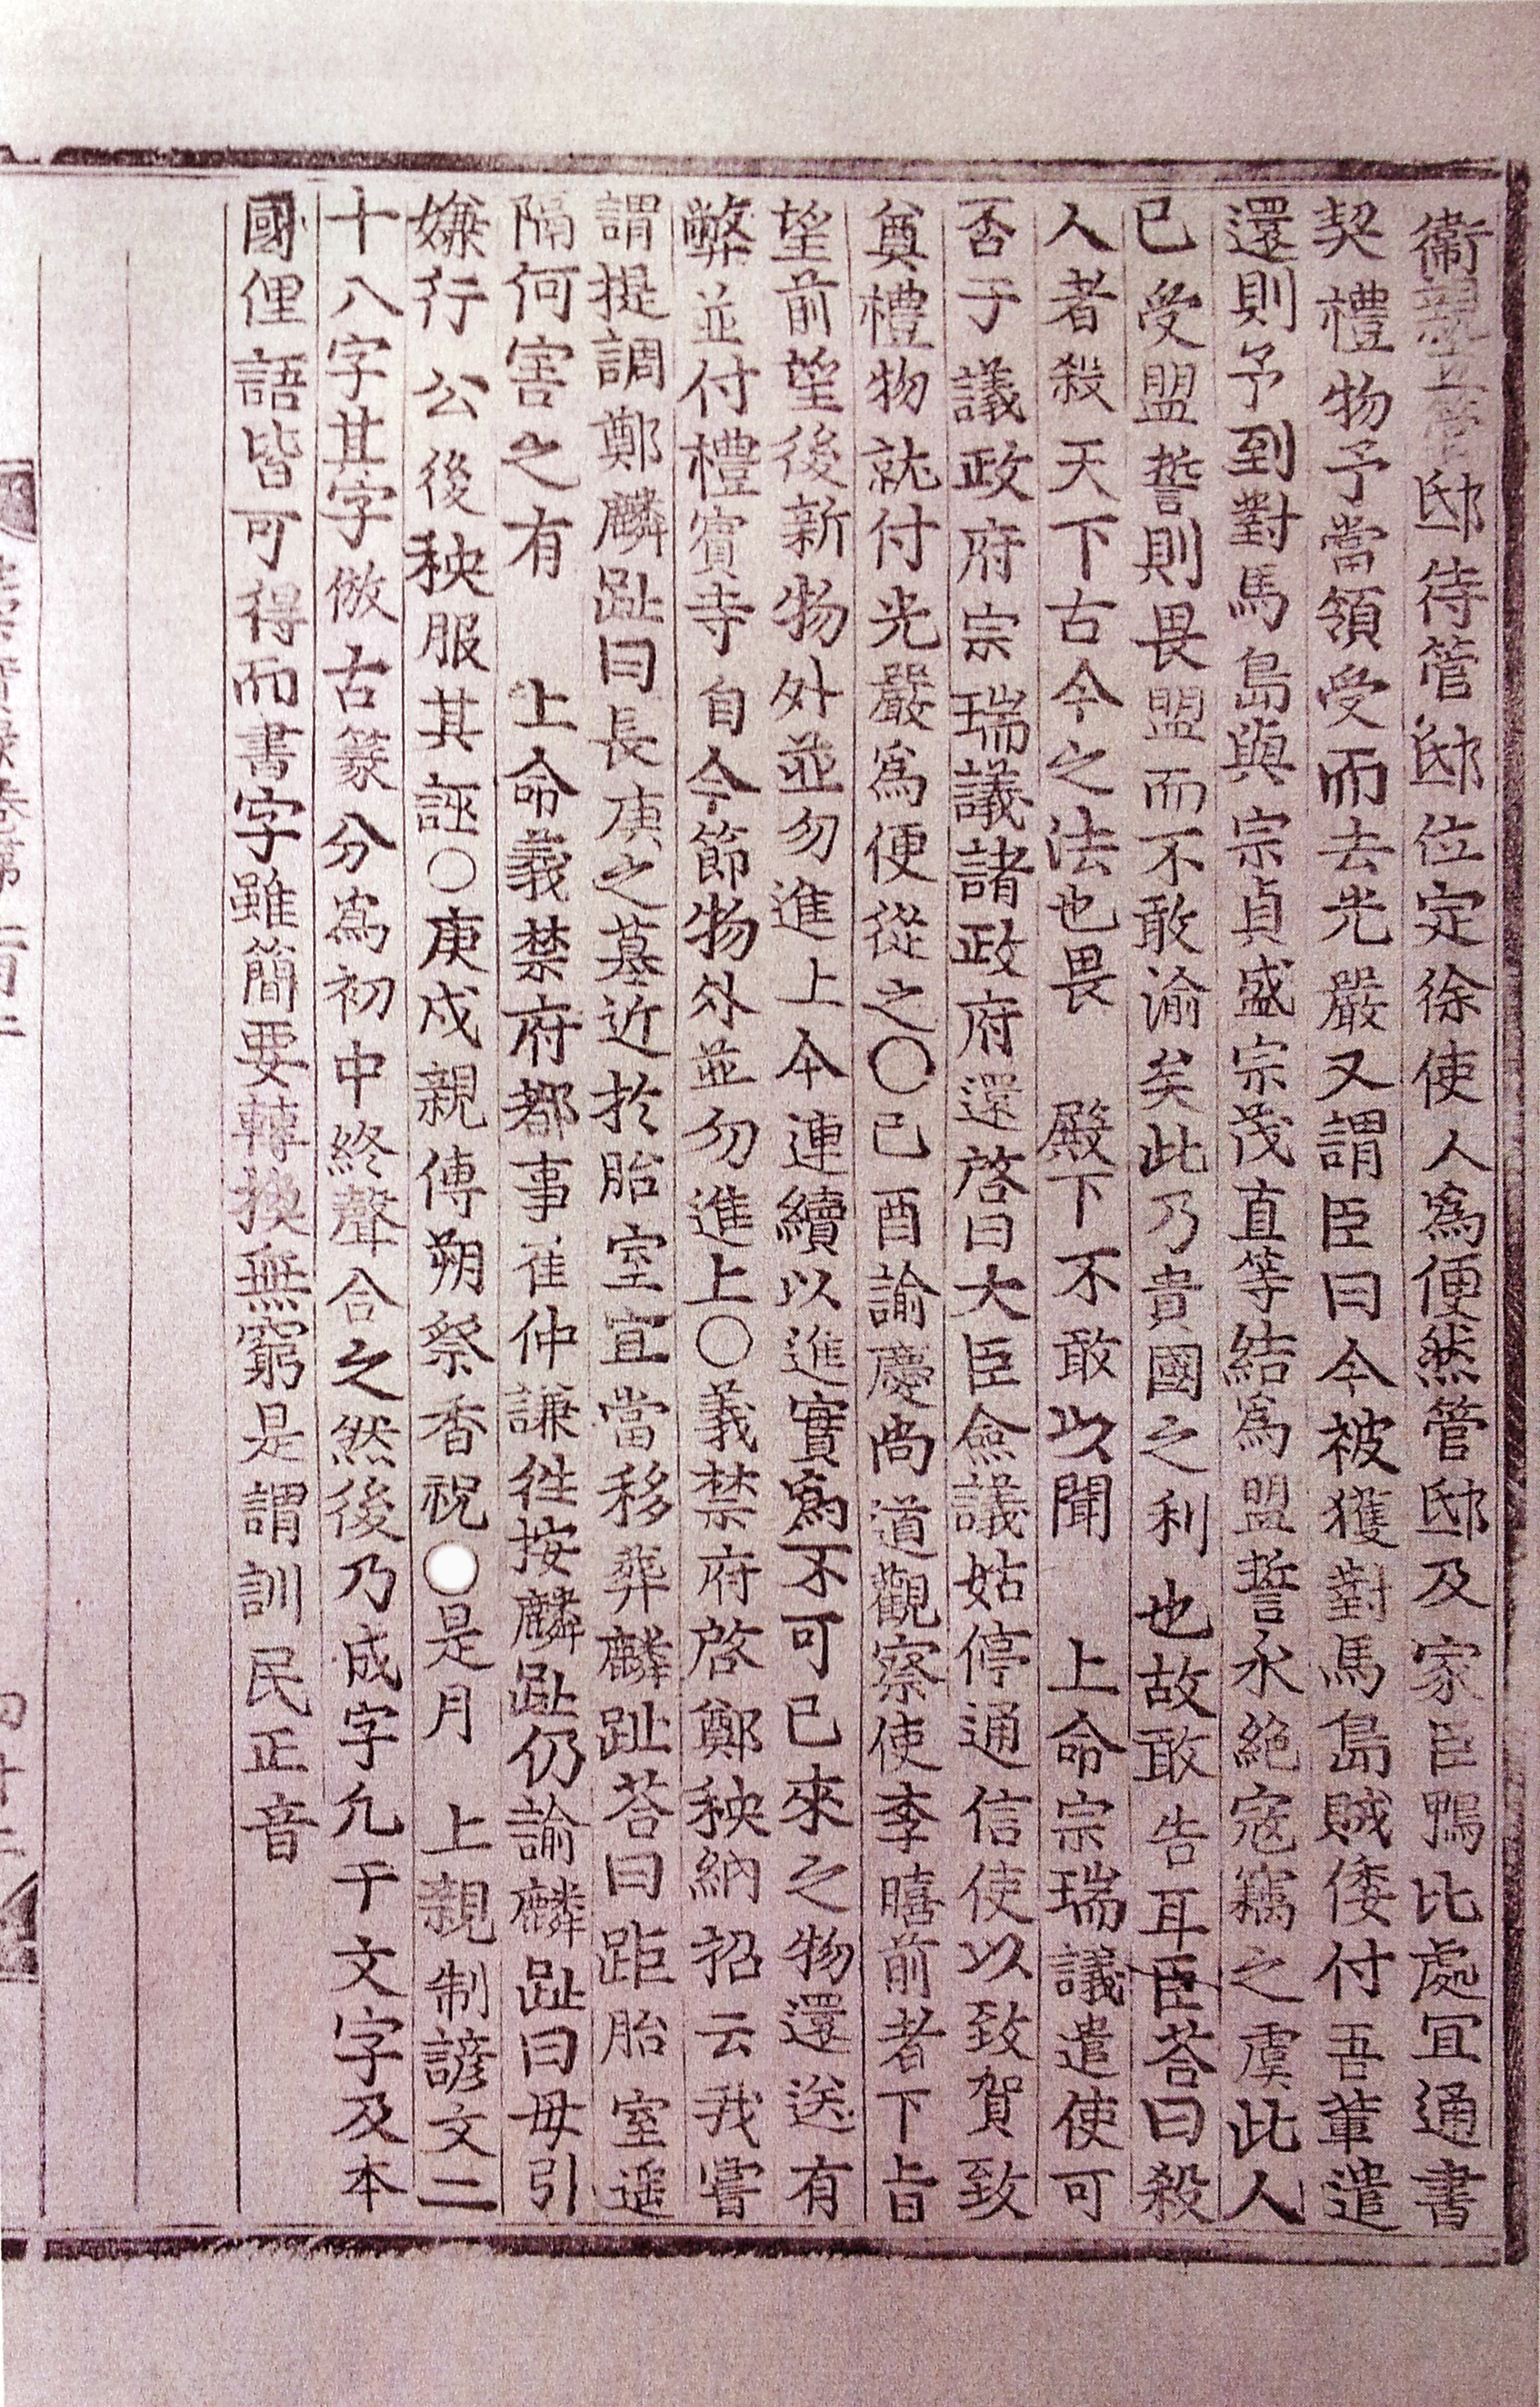 衞親㐀管邸待管邸位定徐使人爲便然管邸及家臣鴨比處宜通書
契禮物予當領受而去光嚴又謂臣曰今被獲對馬島賊倭付吾輩遣
還則予到對馬島與宗貞盛宗茂直等結爲盟誓永絶寇竊之虞此人
已受盟誓則畏盟而不敢渝矣此乃貴國之利也故敢告耳臣荅曰殺
人者殺天下古今之法也畏 殿下不敢以聞 上命宗瑞議遣使可
否于議政府宗瑞議諸政府還啓曰大臣僉議姑停通信使以致賀致
奠禮物就付光嚴爲便從之○己酉諭慶尚道觀察使李暿前者下旨
望前望後新物外並勿進上今連續以進實爲不可已來之物還送有
弊並付禮賓寺自今節物外並勿進上○義禁府啓鄭秧納招云我嘗
謂提調鄭麟趾曰長庚之墓近於胎室宜當移葬麟趾荅曰距胎室遥
隔何害之有 上命義禁府都事崔仲謙徃按麟趾仍諭麟趾曰毋引
嫌行公後秧服其誣○庚戌親傳朔祭香祝○是月 上親制諺文二
十八字其字倣古篆分爲初中終聲合之然後乃成字凢干文字及本
國俚語皆可得而書字雖簡要轉換無窮是謂訓民正音